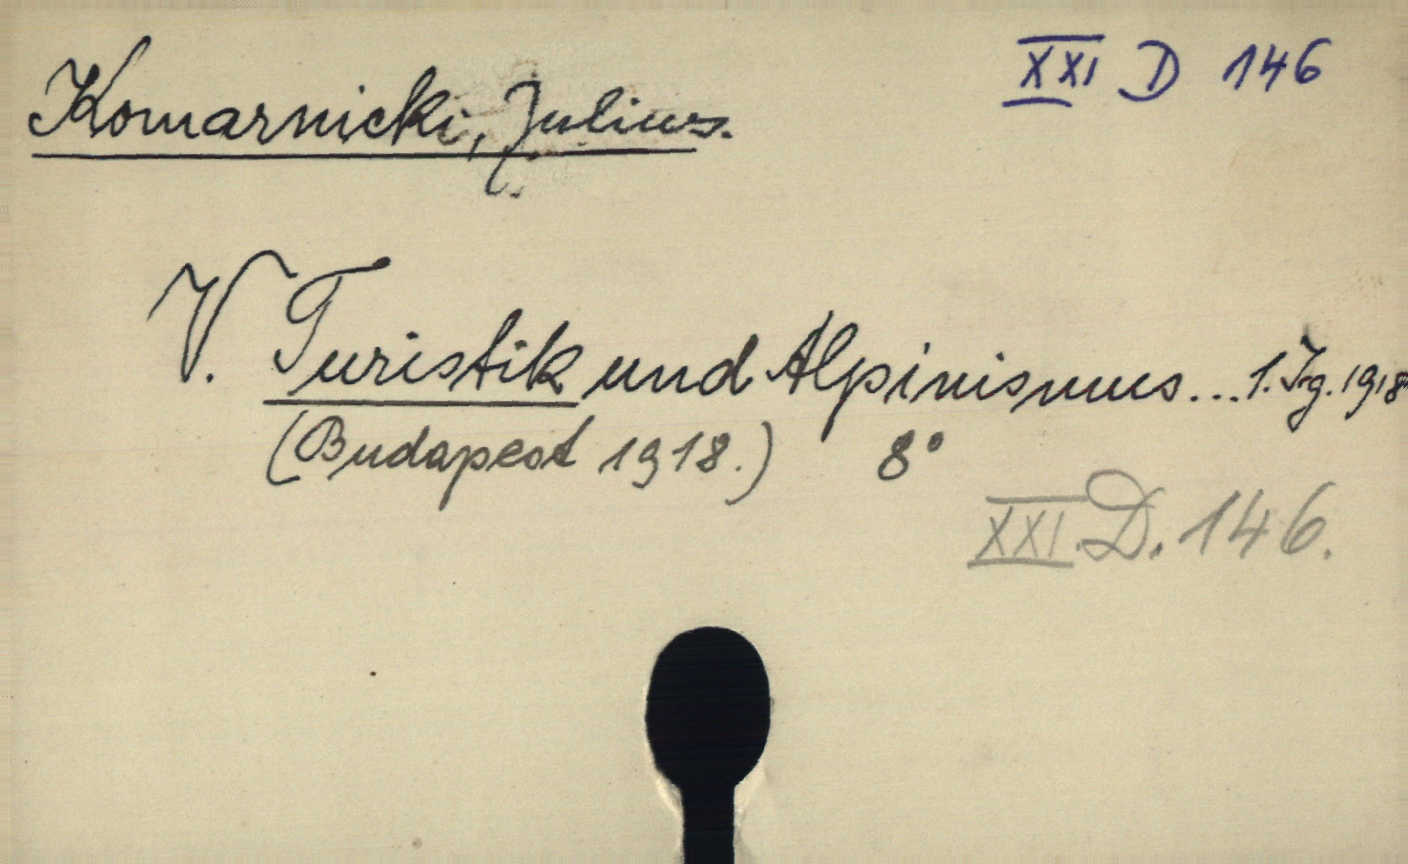 Komarnicki, Julius.
XXI D 146
V. Turistik und Alpinismus... 1. Jrg. 1918
(Budapest 1918.) 8°
XXI. D. 146.